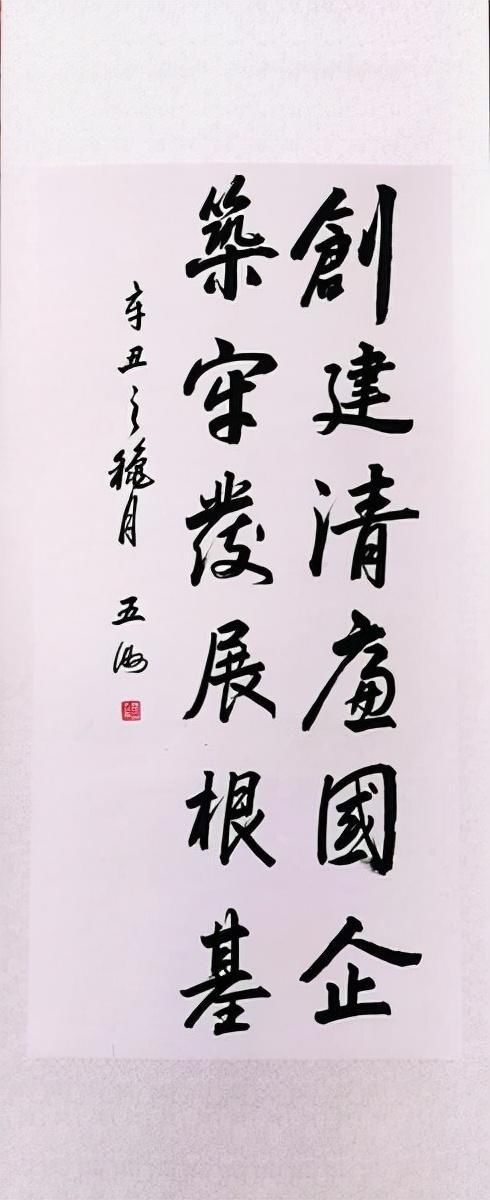 創建清廉國企
築牢發展根基
辛丑之穐月 五洲